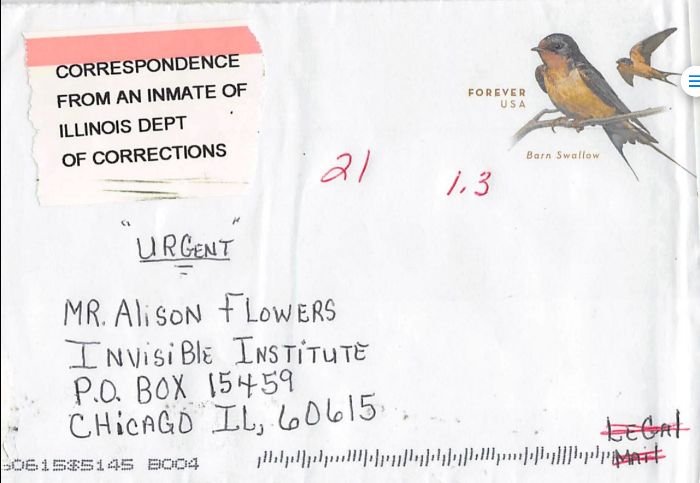 CORRESPONDENCE
FROM AN INMATE OF
ILLINOIS DEPT
OF CORRECTIONS
FOREVER
USA
Barn Swallow
21
1.3
"URGENT"
MR. Alison Flowers
Invisible Institute
P.O. BOX 15459
CHICAGO IL, 60615
LEGAL
MAIL
60615%5145 B004